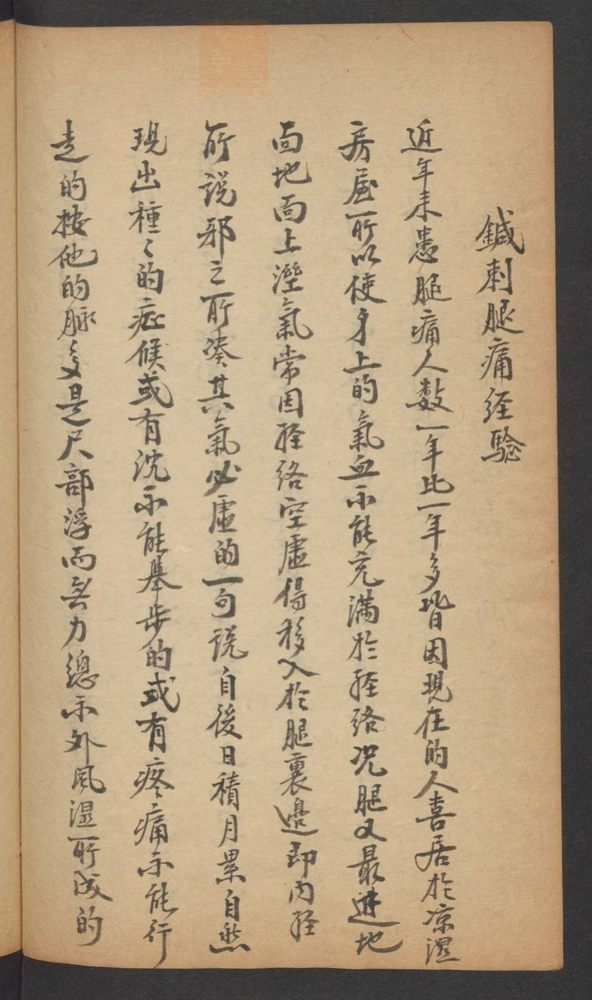 鍼刺腿痛经驗
近年来患腿痛人数一年比一年多皆因現在的人喜居於凉濕
房屋所以使身上的氣血不能充滿於経络况腿又最進地
面地面上溼氣常因経络空虛得移入於腿裏邊即内経
所説邪之所凑其氣必虛的一句説自後日積月累自然
現出種々的症候或有沈不能舉步的或有疼痛不能行
走的按他的脉多是尺部浮而無力總不外風濕所成的